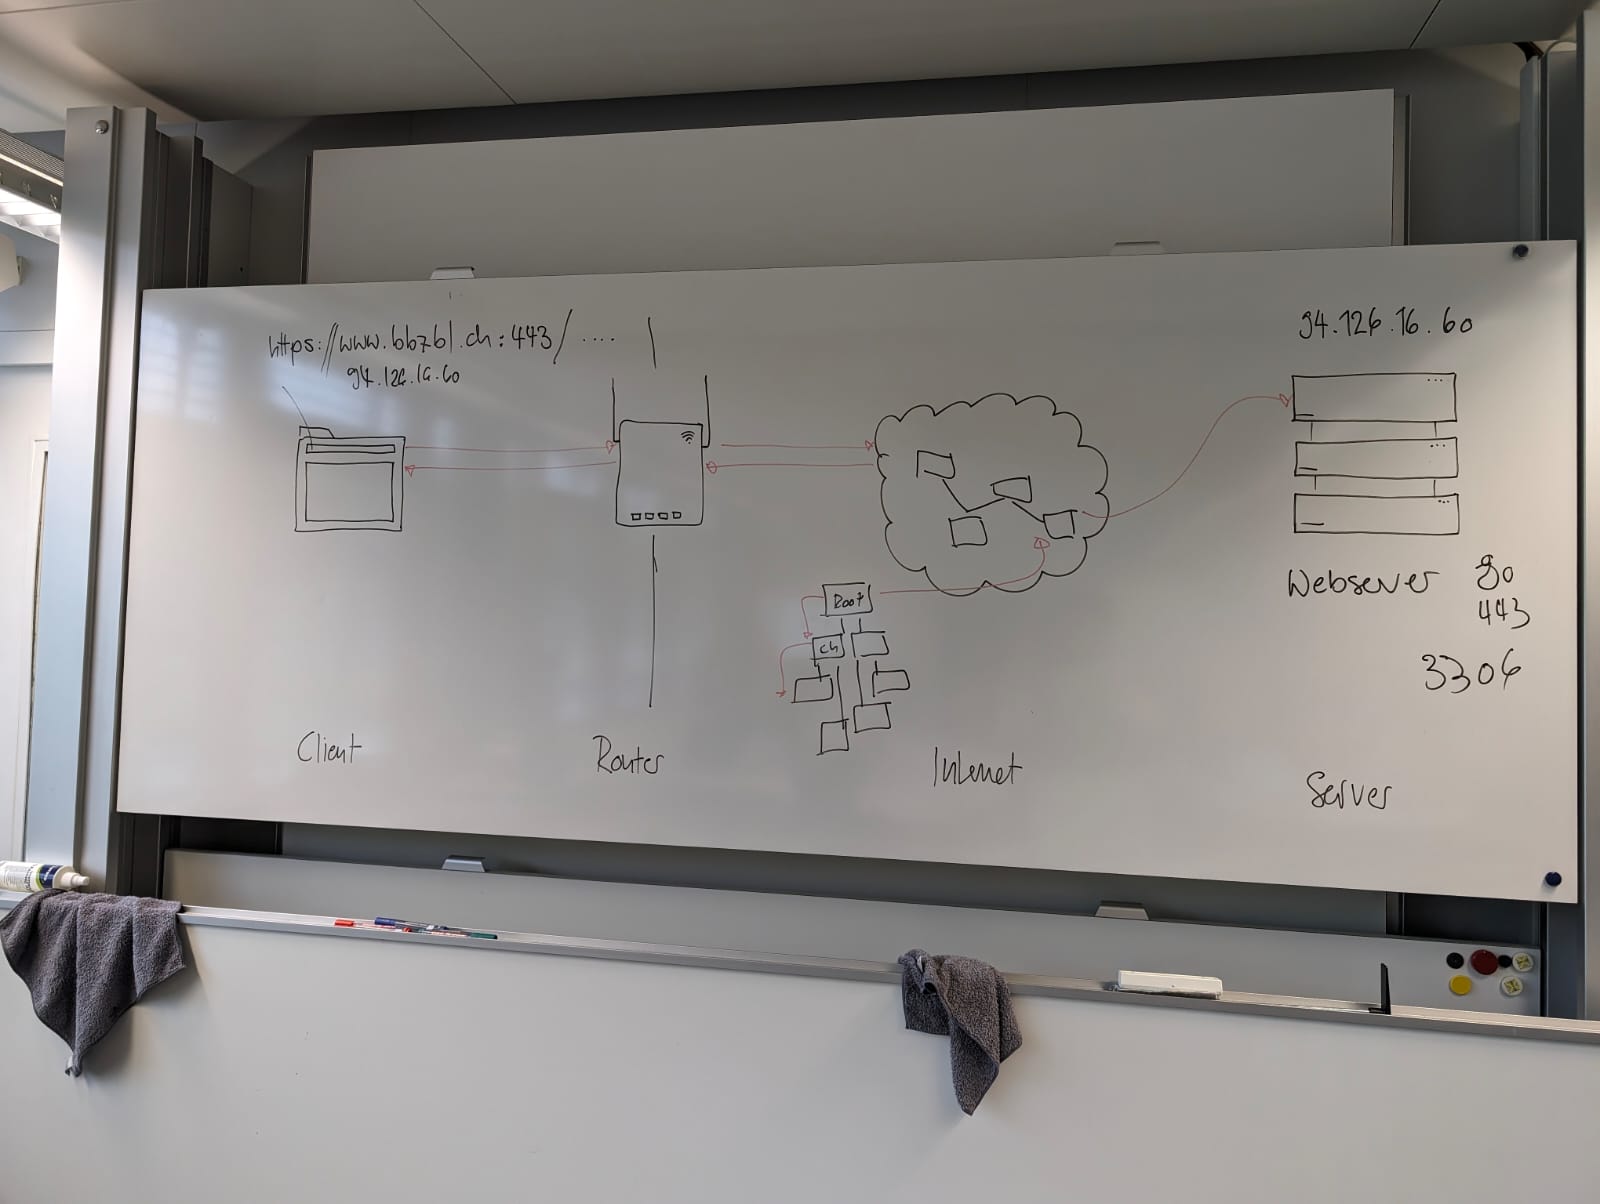 https://www.bbzbl.ch:443/ ....
94.126.16.60
94.126.16.60
Root
ch
Webserver 80
443
3306
Client
Router
Internet
Server